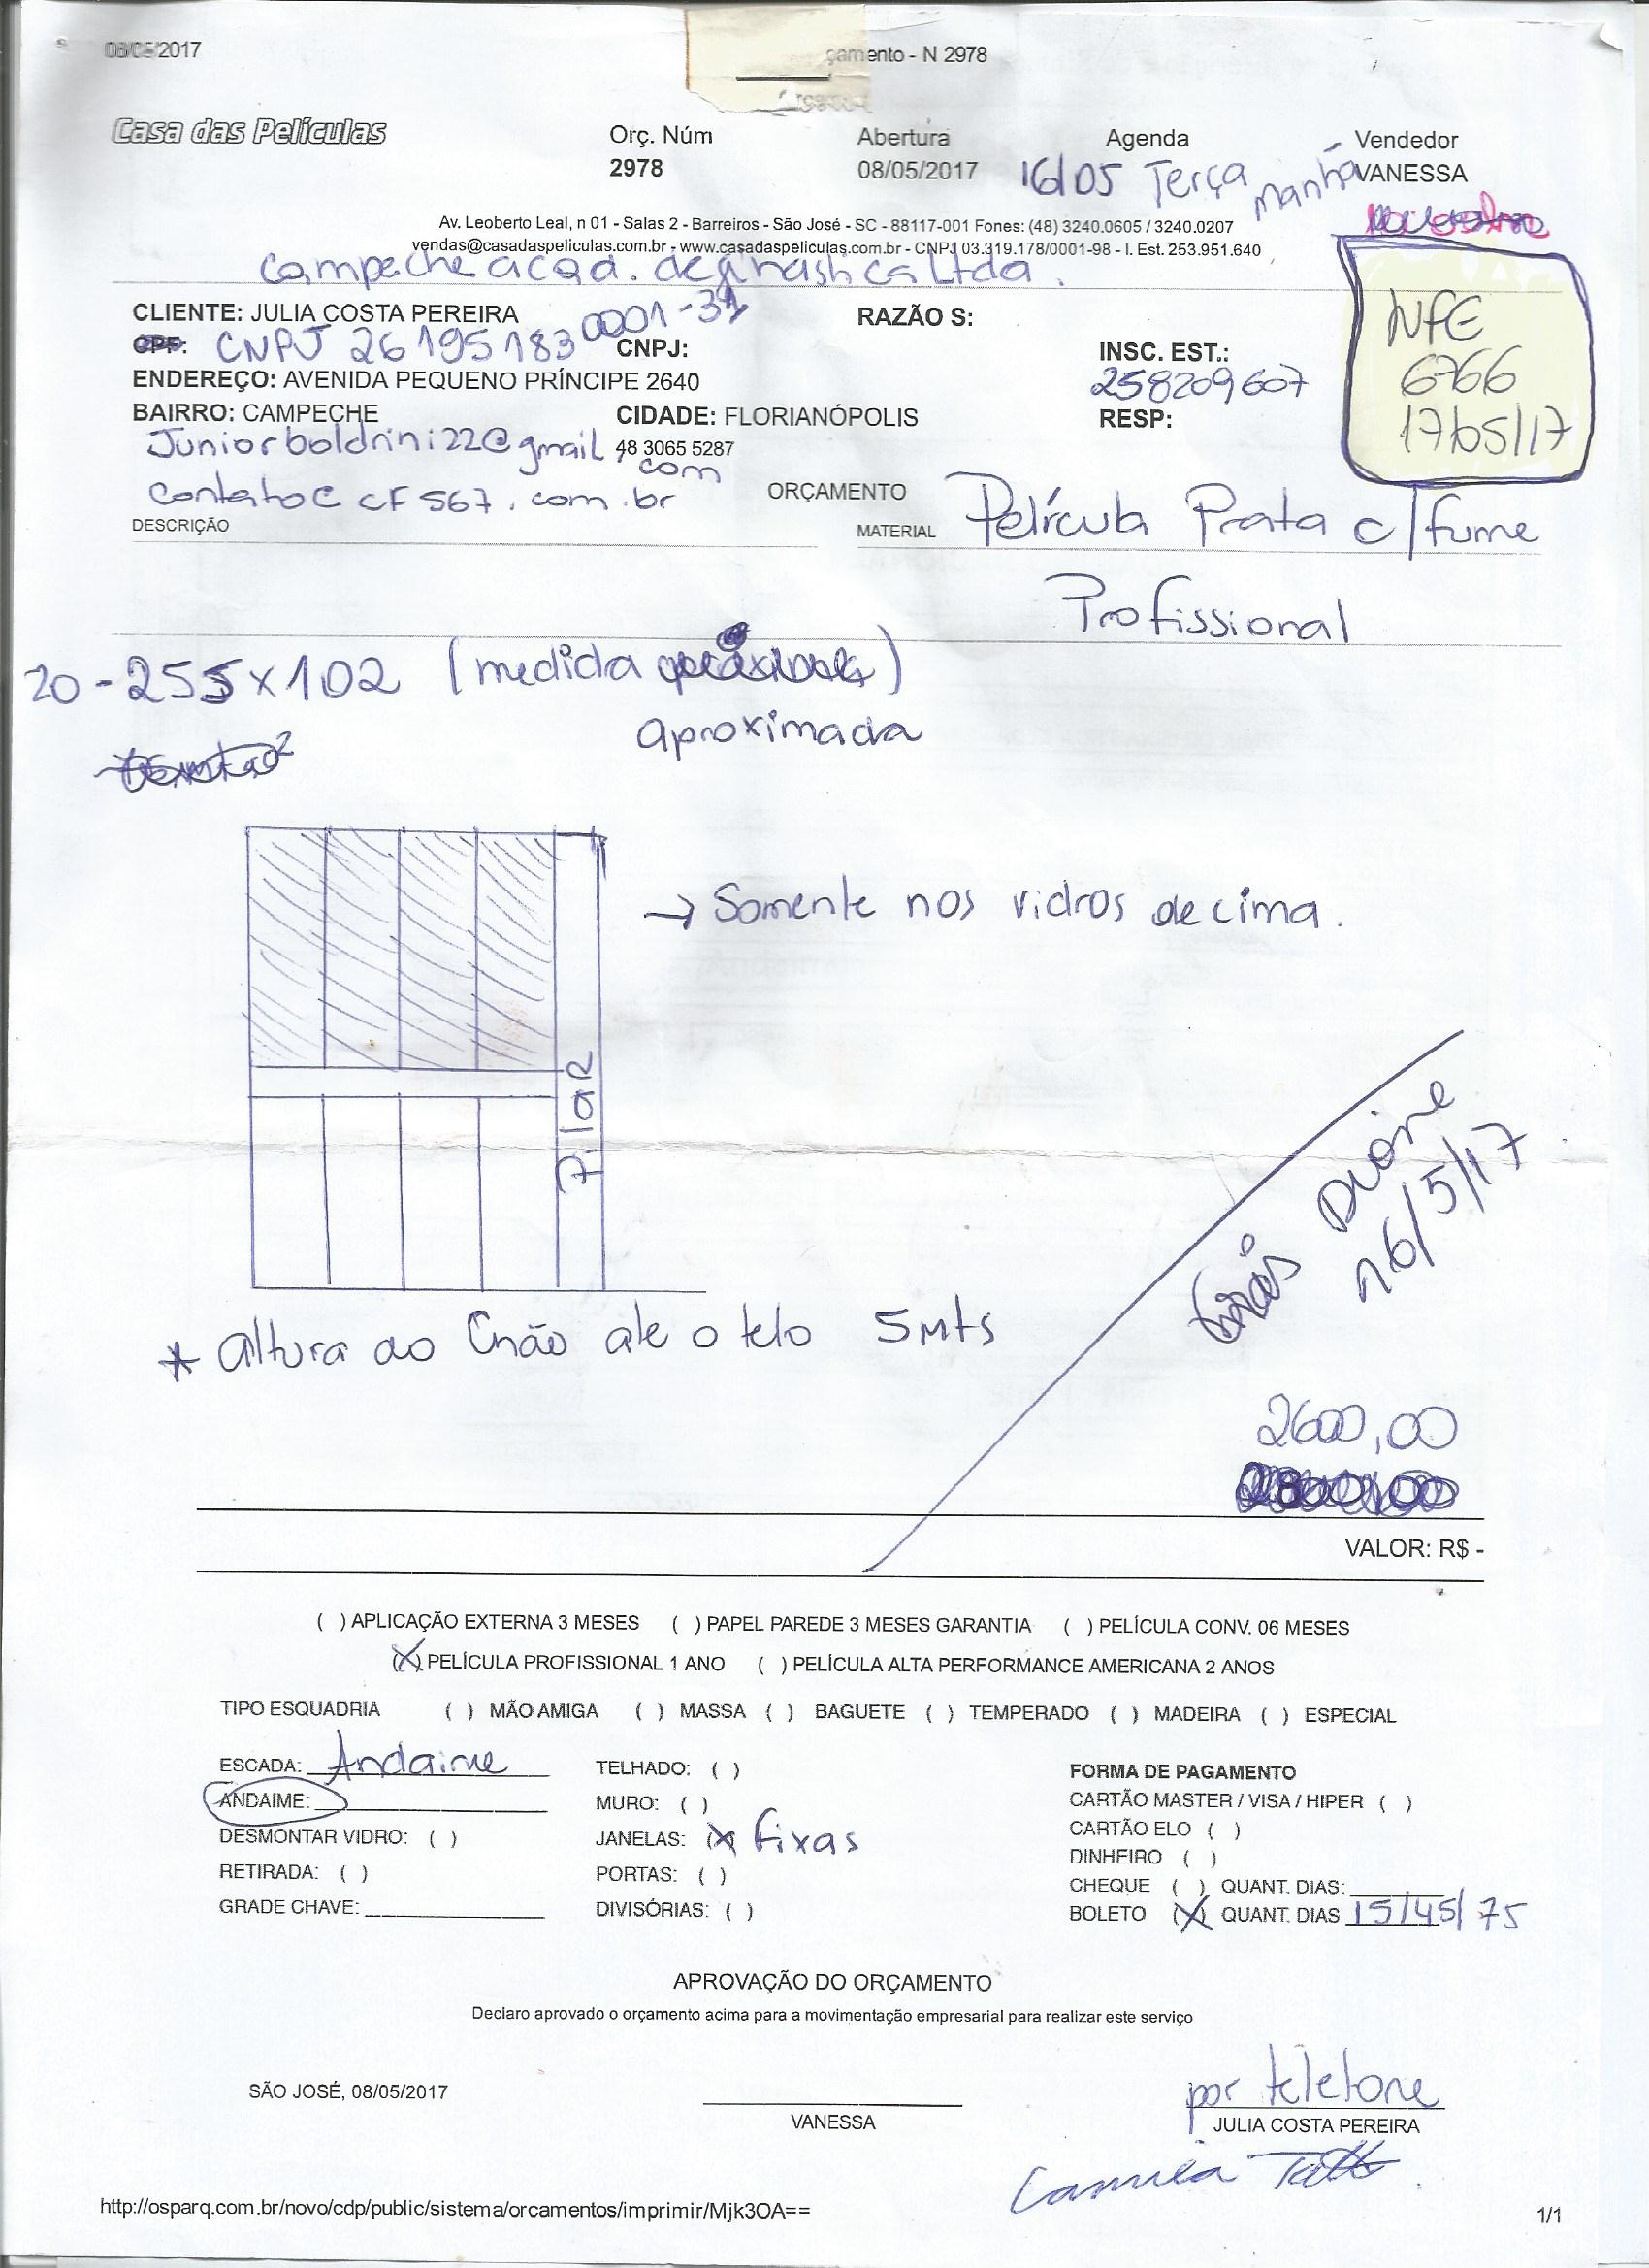 08/05/2017
çamento - N 2978
Casa das Películas
Orç. Núm Abertura Agenda Vendedor
2978 08/05/2017 16/05 Terça manhã VANESSA
Av. Leoberto Leal, n 01 - Salas 2 - Barreiros - São José - SC - 88117-001 Fones: (48) 3240.0605 / 3240.0207
vendas@casadaspeliculas.com.br - www.casadaspeliculas.com.br - CNPJ 03.319.178/0001-98 - I. Est. 253.951.640
Campeche acad. de ginastica Ltda.
CLIENTE: JULIA COSTA PEREIRA RAZÃO S:
CPF: CNPJ 26195183 0001-31 CNPJ: INSC. EST.:
ENDEREÇO: AVENIDA PEQUENO PRÍNCIPE 2640 258209607
BAIRRO: CAMPECHE CIDADE: FLORIANÓPOLIS RESP:
NFE
6766
17/05/17
Juniorboldrini22@gmail.com 48 3065 5287
contato@cf567.com.br
ORÇAMENTO
DESCRIÇÃO MATERIAL Película Prata c/fume
Profissional
20 - 255x102 (medida
aproximada
→ Somente nos vidros de cima.
Pilar
Dione
16/5/17
* altura do Chão ate o teto 5mts
2600,00
2800,00
VALOR: R$ -
( ) APLICAÇÃO EXTERNA 3 MESES ( ) PAPEL PAREDE 3 MESES GARANTIA ( ) PELÍCULA CONV. 06 MESES
(X) PELÍCULA PROFISSIONAL 1 ANO ( ) PELÍCULA ALTA PERFORMANCE AMERICANA 2 ANOS
TIPO ESQUADRIA ( ) MÃO AMIGA ( ) MASSA ( ) BAGUETE ( ) TEMPERADO ( ) MADEIRA ( ) ESPECIAL
ESCADA: Andaime TELHADO: ( ) FORMA DE PAGAMENTO
ANDAIME: MURO: ( ) CARTÃO MASTER / VISA / HIPER ( )
DESMONTAR VIDRO: ( ) JANELAS: (X) fixas CARTÃO ELO ( )
RETIRADA: ( ) PORTAS: ( ) DINHEIRO ( )
GRADE CHAVE: DIVISÓRIAS: ( ) CHEQUE ( ) QUANT. DIAS:
BOLETO (X) QUANT. DIAS 15/45/75
APROVAÇÃO DO ORÇAMENTO
Declaro aprovado o orçamento acima para a movimentação empresarial para realizar este serviço
SÃO JOSÉ, 08/05/2017
por telefone
VANESSA JULIA COSTA PEREIRA
Camila
http://osparq.com.br/novo/cdp/public/sistema/orcamentos/imprimir/Mjk3OA==
1/1